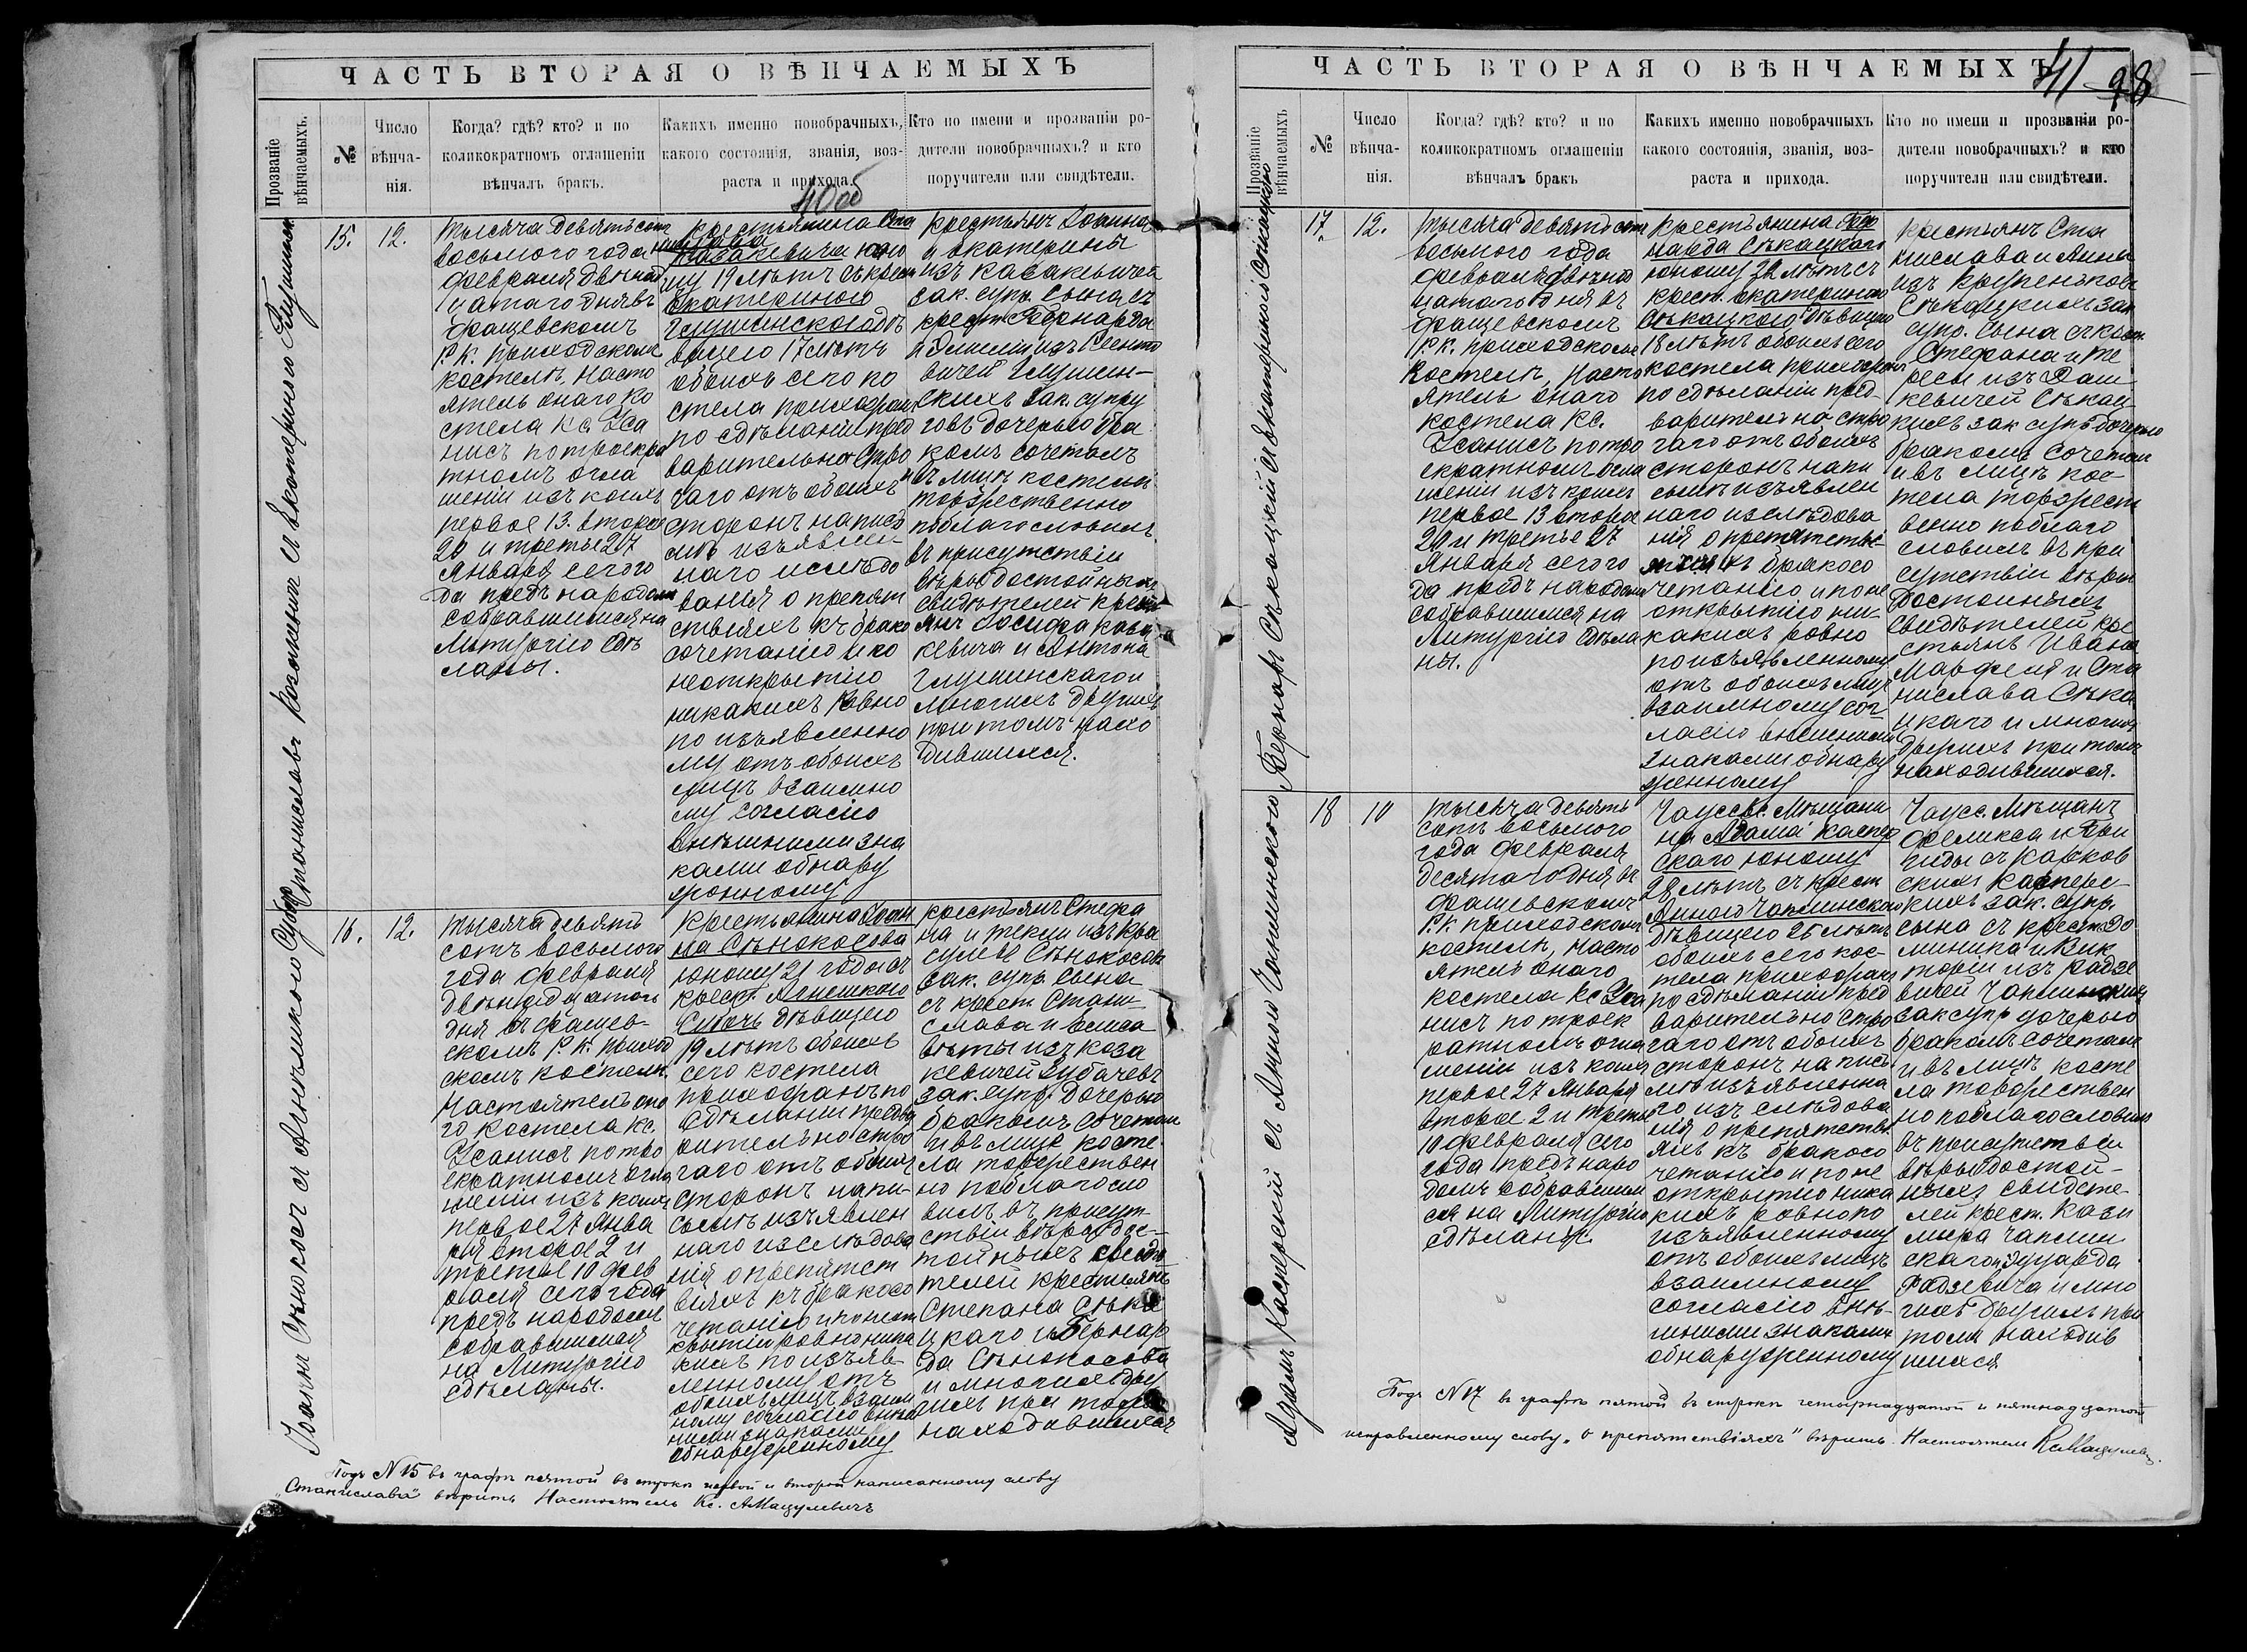 ЧАСТЬ ВТОРАЯ О ВѢНЧАЕМЫХЪ
Прозваніе вѣнчаемыхъ.
№
Число вѣнча-
нія.
Когда? гдѣ? кто? и по
коликократномъ оглашеніи
вѣнчалъ бракъ.
Какихъ именно новобрачныхъ,
какого состоянія, званія, воз-
раста и прихода.
Кто по имени и прозваніи ро-
дители новобрачныхъ? и кто
поручители или свидѣтели.
15.
12.
Тысяча девятьсот
восьмого года
февраля двѣнад
цатаго дня въ
Фащевскомъ
Р. К. приходскомъ
костелѣ, насто
ятель онаго ко
стела Кс. Уса
нисъ по троекра
тномъ огла
шеніи изъ коихъ
первое 13. второе
20 и третье 27
Января сего го
да предъ народомъ
собравшимся на
Литургію сдѣ
ланы.
Крестьянина Ста
нислава
Казакевича юно
шу 19 лѣтъ съ крест
Екатериною
Глушинскою дѣ
вицею 17 лѣтъ
обоихъ сего ко
стела прихожан
по сдѣланіи пред
варительно стро
гаго отъ обоихъ
сторонъ письс
наго изслѣдо
ванія о препят
ствіяхъ къ брако
сочетанію и по
неоткрытію
никакихъ равно
по изъявленно
му отъ обоихъ
лицъ взаимно
му согласію
внѣшними зна
ками обнару
женному
крестьянъ
и Екатерины
изъ Казакевичей
зак. супр. сына съ
крест. Бернарда
и Эмиліи изъ
вичей Глушин-
скихъ зак. супру
говъ дочерью бра
комъ сочеталъ
и въ лицѣ костела
торжественно
поблагословилъ
въ присутствіи
вѣрыдостойныхъ
свидѣтелей крест
янъ Іосифа Каза
кевича и Антона
Глушинскаго и
многихъ другихъ
при томъ нахо
дившихся.
16.
12.
Тысяча девять
сотъ восьмого
года февраля
двѣнадцатого
дня въ Фащев-
скомъ Р. К. приход
скомъ костелѣ.
Настоятель она
го костела Кс.
Усанисъ по тро
екратномъ огла
шеніи изъ коихъ
первое 27 Янва
ря второе 2 и
третье 10 Фев
раля сего года
предъ народомъ
собравшимся
на Литургію
сдѣланы.
Крестьянина Іоан
на Сѣнокосова
юношу 21 года съ
крест. Агнешкою
дѣвицею
19 лѣтъ обоихъ
сего костела
прихожанъ по
сдѣланіи предва
рительно стро
гаго отъ обоихъ
сторонъ напи-
изъявлен
наго изслѣдова
нія о препятст
віяхъ къ бракосо
четанію и по неот
крытіи равно ника
кихъ по изъяв-
ленному отъ
обоихъ лицъ взаим
ному согласію внѣш
ними знаками
обнаруженному
крестьянъ Стефа
на и Теклі изъ
Сѣнокосовъ
зак. супр. сына
съ крест. Стани
слава и Елиса
веты изъ Каза
кевичей
зак. супр. дочерью
бракомъ сочеталъ
и въ лицѣ косте
ла торжествен
но поблагосло
вилъ въ присут
ствіи вѣрыдос-
тойныхъ свидѣ
телей крестьянъ
Степана Сѣка
цкаго и Бернар
да Сѣнокосова
и многихъ дру
гихъ при томъ
находившихся
Подъ N 15 въ графѣ пятой въ строкѣ первой и второй написанному слову
„Станислава" вѣрить Настоятель Кс. АМацулевичъ
ЧАСТЬ ВТОРАЯ О ВѢНЧАЕМЫХЪ
41 98
Прозваніе вѣнчаемыхъ
№
Число вѣнча-
нія.
Когда? гдѣ? кто? и по
коликократномъ оглашеніи
вѣнчалъ бракъ
Какихъ именно новобрачныхъ
какого состоянія, званія, воз-
раста и прихода.
Кто по имени и прозваніи ро-
дители новобрачныхъ? и кто
поручители или свидѣтели.
Бернардъ Сѣкацкій съ Екатериною Сѣкацкою
17.
12.
Тысяча девятьсот
восьмого года
февраля двѣнад
цатаго дня въ
Фащевскомъ
Р. К. приходскомъ
Костелѣ, насто
ятель онаго
костела Кс.
Усанисъ по тро
екратномъ огла
шеніи изъ коихъ
первое 13 второе
20 и третье 27
Января сего го
да предъ народомъ
собравшимся на
Литургію сдѣла
ны.
Крестьянина Бер
нарда Сѣкацкаго
юношу 22 лѣтъ съ
крест. Екатериною
Сѣкацкою дѣвицею
18 лѣтъ обоихъ сего
костела прихожанъ
по сдѣланіи пред-
варительно стро
гаго отъ обоихъ
сторонъ напи
изъявлен
наго изслѣдова
нія о препятств
къ бракосо
четанію и по не
открытію ни-
какихъ равно
по изъявленному
отъ обоихъ лицъ
взаимному сог
ласію внѣшними
знаками обнару
женному
крестьянъ Ста
нислава и Анны
изъ
Сѣкацкихъ зак
супр. сына съ крест.
Стефана и Те
ресы изъ Даш
кевичей Сѣкац
кихъ зак супр дочерью
бракомъ сочеталъ
и въ лицѣ кос-
тела торжест
венно поблаго
словилъ въ при
сутствіи вѣры
достойныхъ
свидѣтелей кре
стьянъ Ивана
и Ста
нислава Сѣка
цкаго и многихъ
другихъ при томъ
находившихся.
Адамъ Касперскій съ Анною Чаплинскою
18
10
Тысяча девять
сотъ восьмого
года февраля
десятаго дня въ
Фащевскомъ
Р. К. приходскомъ
костелѣ, насто
ятель онаго
костела Кс Уса
нисъ по троек
ратномъ огла
шеніи изъ коихъ
первое 27 Января
второе 2 и третье
10 февраля сего
года предъ наро
домъ собравшим
ся на Литургію
сдѣланы.
Чаусск. Мѣщани
на Адама Каспер
скаго юношу
28 лѣтъ съ крест
Анною Чаплинскою
дѣвицею 25 лѣтъ
обоихъ сего кос-
тела прихожанъ
по сдѣланіи пред
варительно стро
гаго отъ обоихъ
сторонъ на пись
мѣ изъявленна
го изслѣдова
нія о препятстві
яхъ къ бракосо
четанію и по не
открытію ника
кихъ равно по
изъявленному
отъ обоихъ лицъ
взаимному
согласію внѣ-
шними знаками
обнаруженному
Чаусс. Мѣщанъ
Феликса и Бри
гиды съ
Касперс-
кихъ зак. супр.
сына съ крест. До
миника и Вик
торіи изъ Радзе
вичей Чаплинскихъ
зак супр дочерью
бракомъ сочеталъ
и въ лицѣ косте
ла торжествен
но поблагословилъ
въ присутствіи
вѣрыдостой-
ныхъ свидѣте-
лей крест. Кази
мира Чаплин
скаго и Эдуарда
Радзевича и мно
гихъ другихъ при
томъ находив
шихся
Подъ N 17 въ графѣ пятой въ строкѣ четырнадцатой и пятнадцатой
исправленному слову „о препятствіяхъ" вѣрить. Настоятель Кс. Мацулевич.
Станиславъ Казакевичъ съ Екатериною Глушинскою
Іоаннъ Сѣнокосъ съ